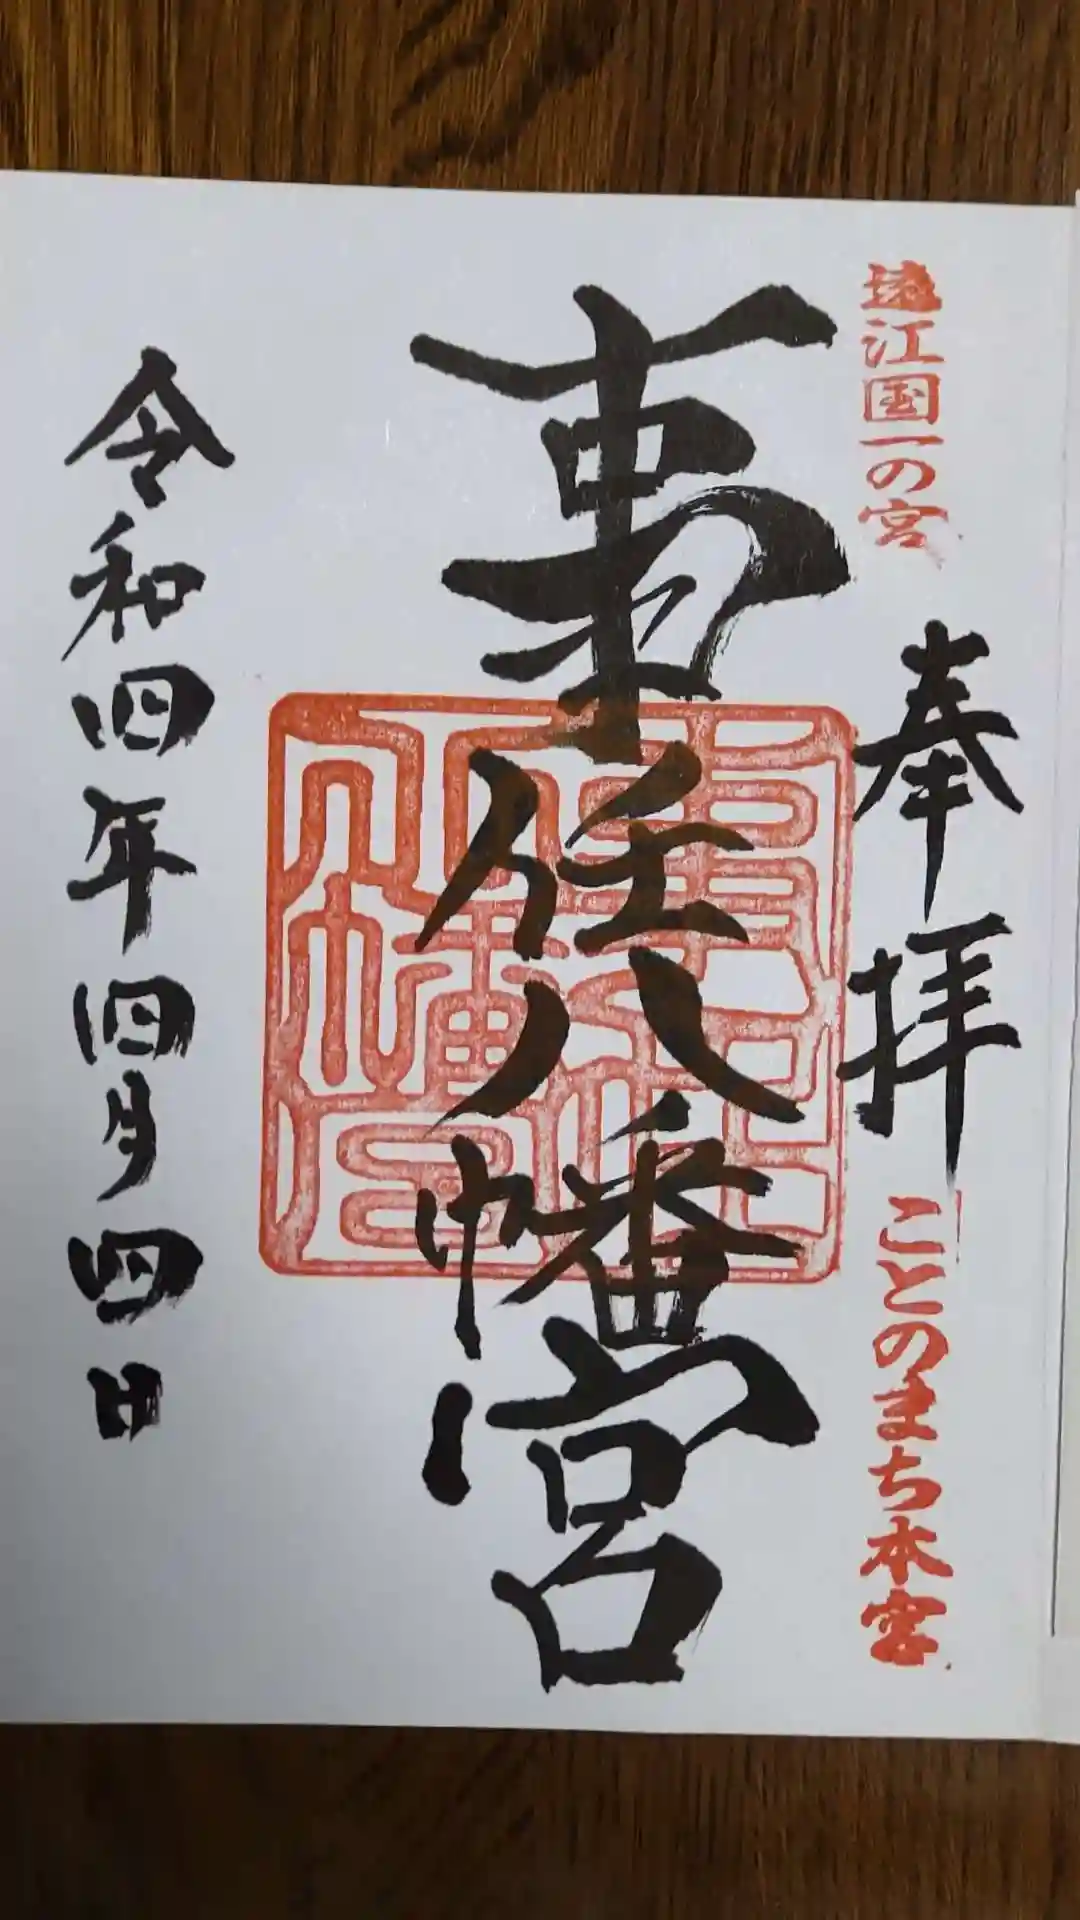 遠江国一の宮
奉拝
ことのまち本宮
事任八幡宮
事任
八幡宮
令和四年四月四日